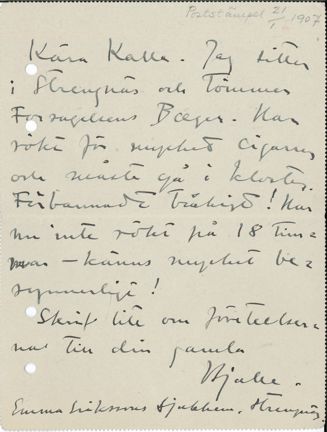 Poststämpel 21/1 1907
Kära Kalle. Jag sitter
i Strengnäs och tömmer
Forsagelsens Bæger. Har
rökt för mycket cigarrer
och måste gå i kloster.
Förbannadt tråkigt! Har
nu inte rökt på 18 tim-
mar – känns mycket be-
kymmerligt!
Skrif lite om företeelser-
na till din gamla
Hjalle.
Emma Erikssons Sjukhem, Strengnäs